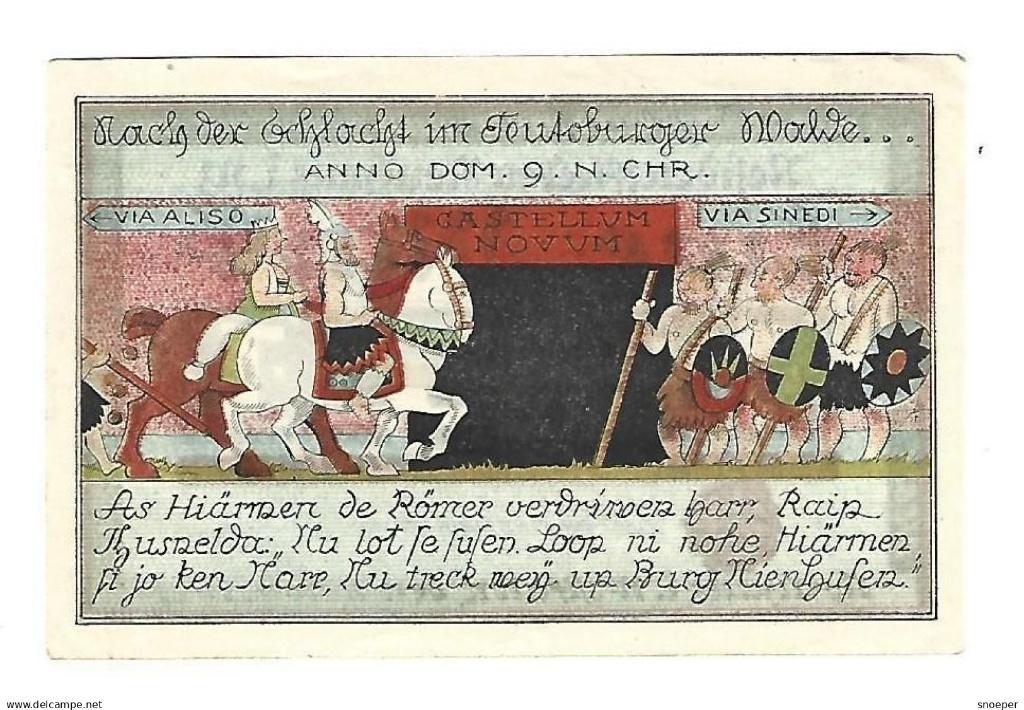 Nach der Schlacht im Teutoburger Walde...
ANNO DOM. 9. N. CHR.
VIA ALISO
CASTELLUM
NOVUM
VIA SINEDI
As Hiärmen de Römer verdriwen harr, Raip
Thusnelda: „Nu lot se susen. Loop ni nohe, Hiärmen,
si jo ken Narr, Nu treck wey up Burg Nienhusen."
https://www.delcampe.net
snoeper